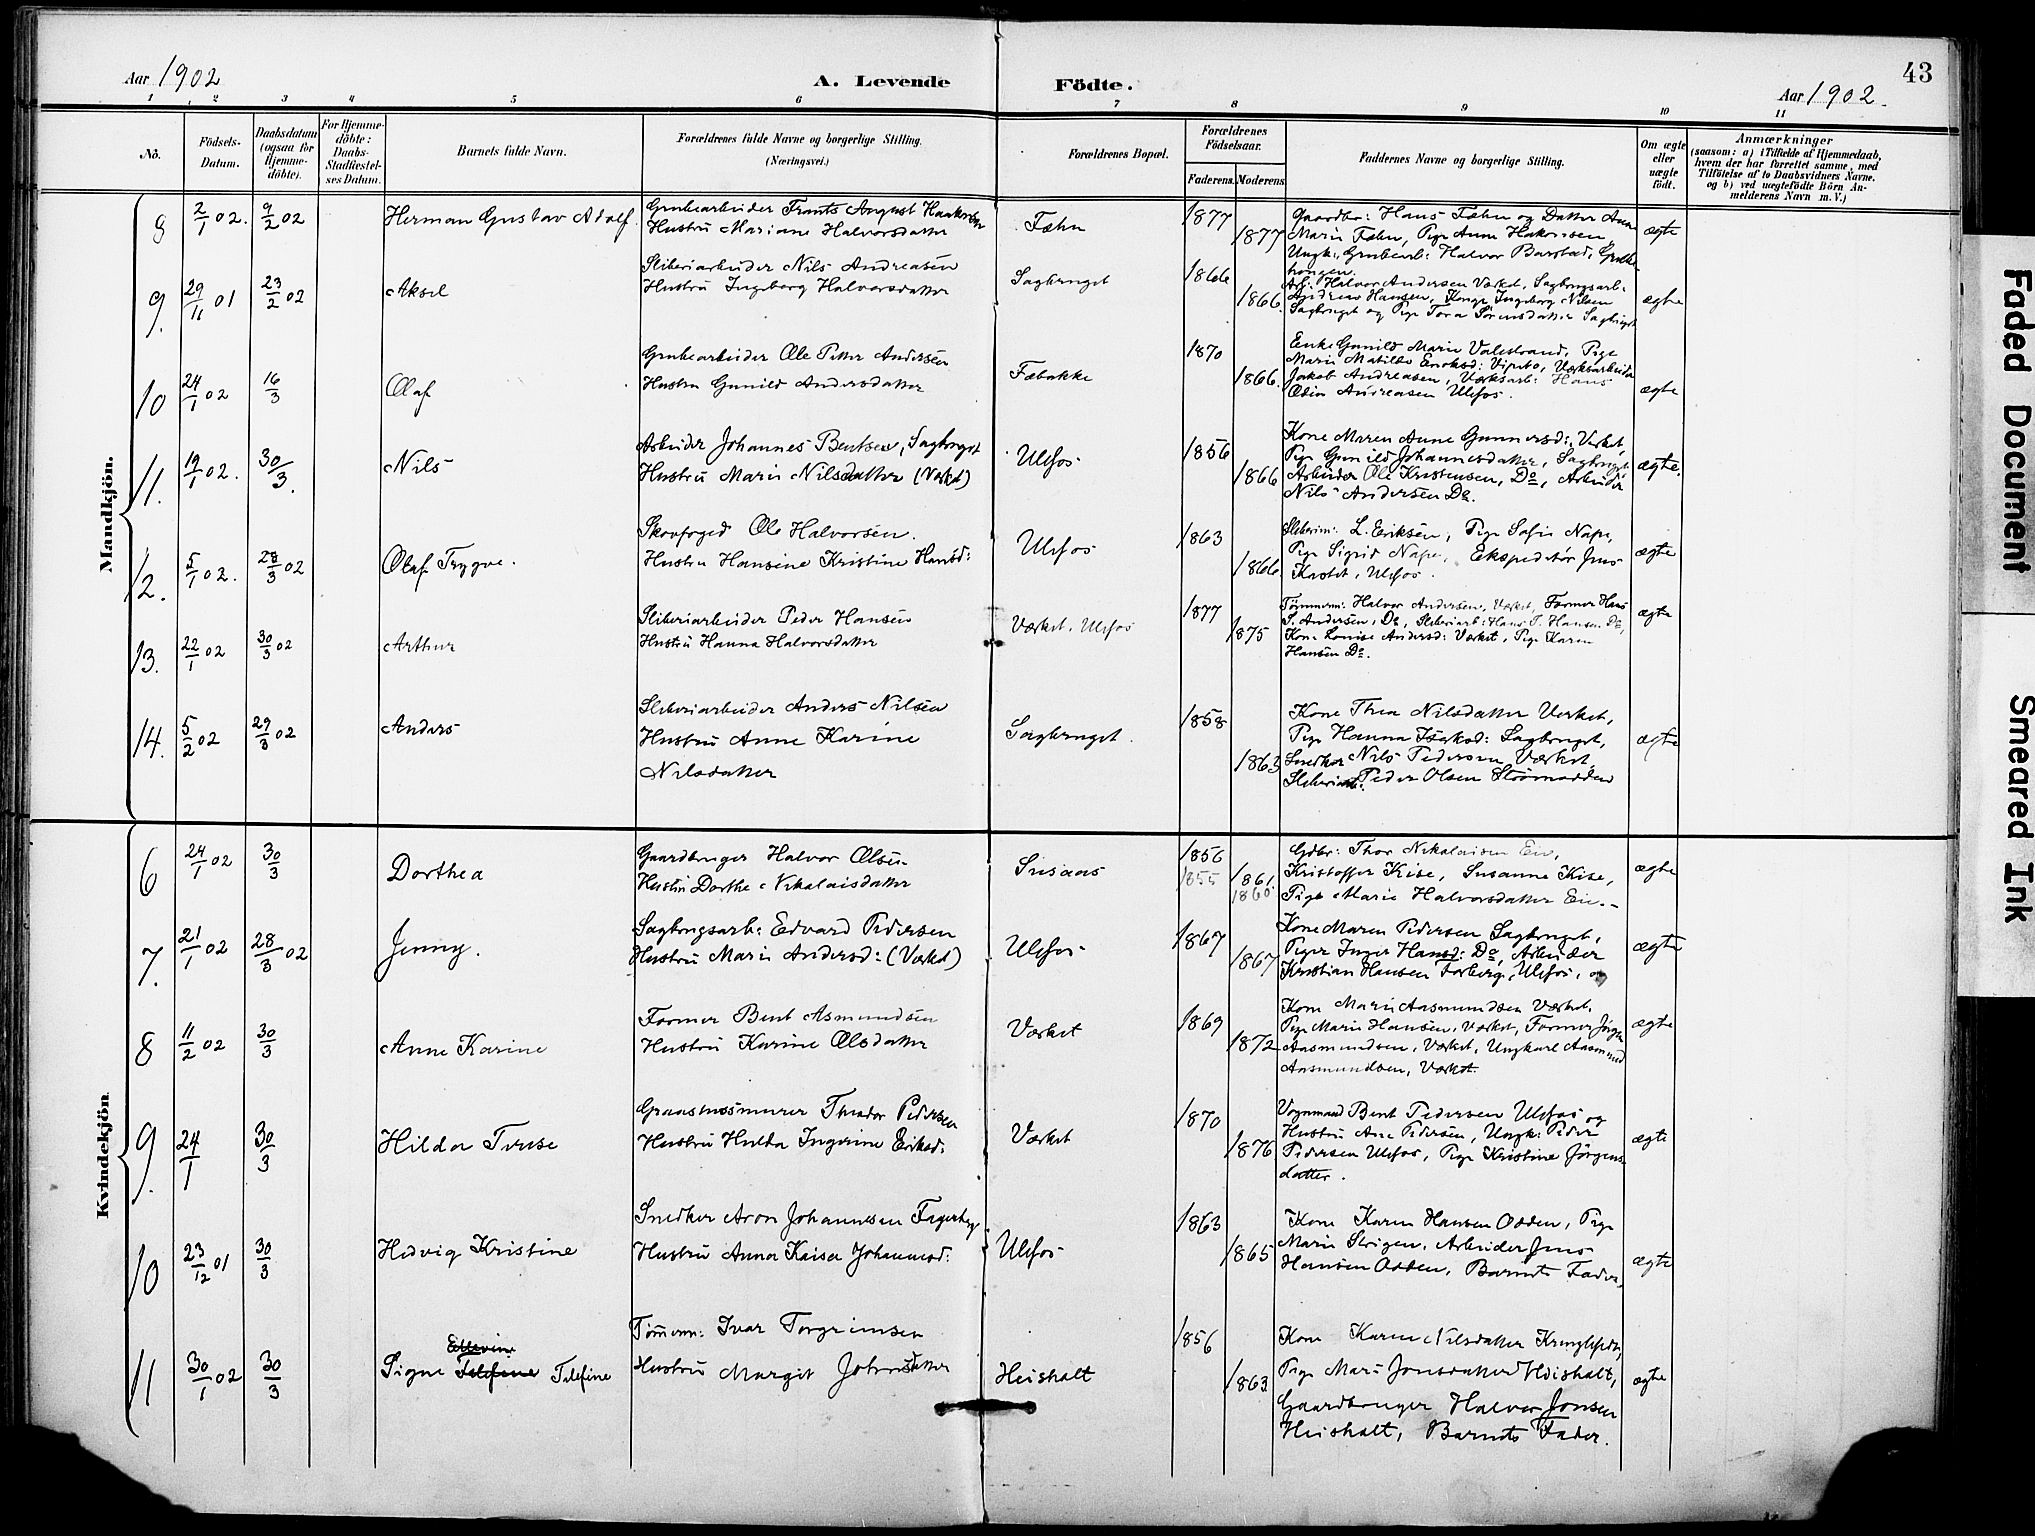 43
Aar 1902
A. Levende Födte.
Aar 1902.
1 2 3 4 5 6 7 8 9 10 11
No.
Födsels-Datum.
Daabsdatum (ogsaa for Hjemme-döbte).
For Hjemme-döbte: Daabs-Stadfæstel-ses Datum.
Barnets fulde Navn.
Forældrenes fulde Navne og borgerlige Stilling.
(Næringsvei.)
Forældrenes Bopæl.
Forældrenes Födselsaar.
Faderens. Moderens.
Faddernes Navne og borgerlige Stilling.
Om ægte eller uægte födt.
Anmærkninger
(saasom: a) i Tilfælde af Hjemmedaab,
hvem der har forrettet samme, med
Tilföielse af to Daabsvidners Navne.
og b) ved uægtefödte Börn An-
melderens Navn m. V.)
Mandkjön.
8 2/1 02. 9/2 02 Herman Gustav Adolf. Grubearbeider Frants August Haakonsen
Hustru Mariane Halvorsdatter
Fæhn 1877 1877
Gaardbr: Hans Fæhn og Datter Anne
Marie Fæhn, Pige Anne Hakonsen
Ungk., Grubearb: Halvor Barstad,
ægte
9. 29/11 01 23/2 02 Aksel Sliberiarbeider Nils Andreasen
Hustru Ingeborg Halvorsdatter
Sagbruget 1866 1866.
Arb: Halvor Andersen Værket, Sagbrugsarb:
Andreas Hansen, Konge Ingeborg Nilsen
Sagbruget og Pige Tora Sørensdatter Sagbruget
ægte
10 24/1 02 16/3 Olaf Grubearbeider Ole Petter Andersen
Hustru Gunild Andersdatter
Fæbakke 1870 1866.
Enke Gunild Marie Valestrand, Pige
Marie Matilde Enoksd: Vipeto, Værksarbeider
Jakob Andreasen, Værksarb: Hans
Odin Andreasen Ulefos.
ægte
11. 19/1 02. 30/3. Nils Arbeider Johannes Bentsen, Sagbruget
Hustru Marie Nilsdatter (Værket)
Ulefos 1856 1866
Kone Maren Anne Gunnersd:, Værket,
Pige Gunild Johannesdatter, Sagbruget
Arbeider Ole Kristensen, Do, Arbeider
Nils Andersen Do.
ægte.
12. 5/1 02. 28/3 02 Olaf Trygve. Skovfoged Ole Halvorsen.
Hustru Hansine Kristine Hansd:
Ulefos 1863 1866.
Sliberim: L. Eriksen, Pige Sofie Nape,
Pige Sigrid Nape, Ekspeditør Jens
Kastet, Ulefos.
ægte
13. 22/1 02 30/3 02 Arthur Sliberiarbeider Peder Hansen
Hustru Hanna Halvorsdatter
Værket, Ulefos 1877 1875
Tømmerm: Halvor Andersen, Værket, Former Hans
S. Andersen, Do, Sliberiarb: Hans P. Hansen Do,
Kone Louise Andersd: Værket, Pige Karen
Hansen Do.
ægte
14. 5/2 02 29/3 02 Anders Sliberiarbeider Anders Nilsen
Hustru Anne Karine
Nilsdatter
Sagbruget. 1858 1863
Kone Thea Nilsdatter Værket,
Pige Hanna Isaksd: Sagbruget,
Snedker Nils Pedersen Værket,
Sliberiarb: Peder Olsen Strømodden
ægte
Kvindekjön.
6 24/1 02 30/3 Dorthea Gaardbruger Halvor Olsen
Hustru Dorthe Nikolaisdatter
Susaas 1856 1855 1861 1860
Gdbr: Thor Nikolaisen Eie,
Kristoffer Kise, Susanne Kise,
Pige Marie Halvorsdatter Eie.
ægte
7. 21/1 02 28/3 02 Jenny. Sagbrugsarb: Edvard Pedersen
Hustru Marie Andersd: (Værket)
Ulefos 1867 1867
Kone Maren Pedersen Sagbruget,
Piger Inger Hansd: Do, Arbeider
Kristian Hansen Aarberg, Ulefos, og
ægte
8 11/2 02 30/3 Anne Karine Former Bent Asmundsen
Hustru Karine Olsdatter
Værket 1869 1872
Kone Marie Aasmundsen Værket,
Pige Marie Hansen, Værket, Former Jørgen
Aasmundsen, Værket, Ungkarl Aasmund
Aasmundsen, Værket.
ægte
9. 24/1 30/3 Hilda Terese Graastensmurer Theodor Pedersen
Hustru Hulda Ingerine Eriksd:
Værket 1870 1876
Vognmand Bent Pedersen Ulefos og
Hustru Ane Pedersen, Ungk: Peder
Pedersen Ulefos, Pige Kristine Jørgens-
datter.
ægte
10 23/12 01 30/3 Hedvig Kristine Snedker Aron Johannesen Fagerberg
Hustru Anna Kaisa Johannesd:
Ulefos 1863 1865
Kone Karen Hansen Odden, Pige
Marie Skrigen, Arbeider Jens
Hansen Odden, Barnets Fader,
ægte
11 30/1 02 30/3 Signe Telefine Tømerm: Ivar Torgrimsen
Hustru Margit Johnsdatter
Heishalt 1856 1863
Kone Karen Nilsdatter
Pige Mari Jonsdatter Heishalt,
Gaardbruger Halvor Jonsen
Heishalt, Barnets Fader.
ægte
Faded Document
Smeared Ink